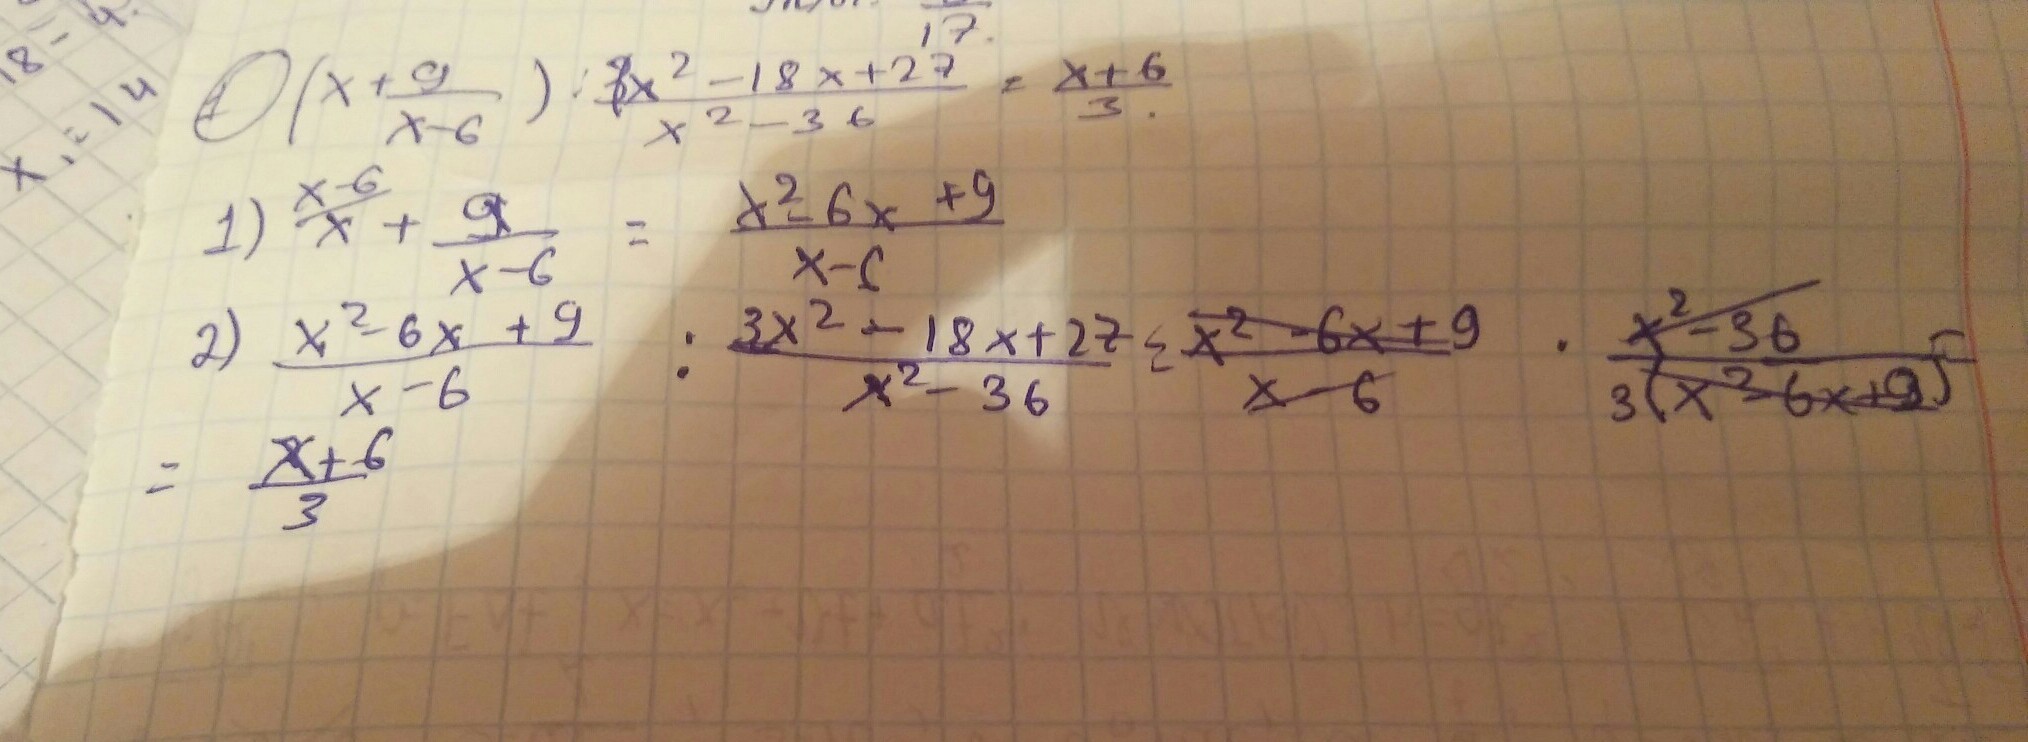 17.
① (x + 9/(x-6)) : (3x² - 18x + 27)/(x² - 36) = (x+6)/3.
1) x^(x-6) + 9/(x-6) = (x² - 6x + 9)/(x-6)
2) (x² - 6x + 9)/(x-6) : (3x² - 18x + 27)/(x² - 36) = (x² - 6x + 9)/(x-6) · (x² - 36)/(3(x² - 6x + 9)) =
= (x+6)/3
18 -
x₁ = 14